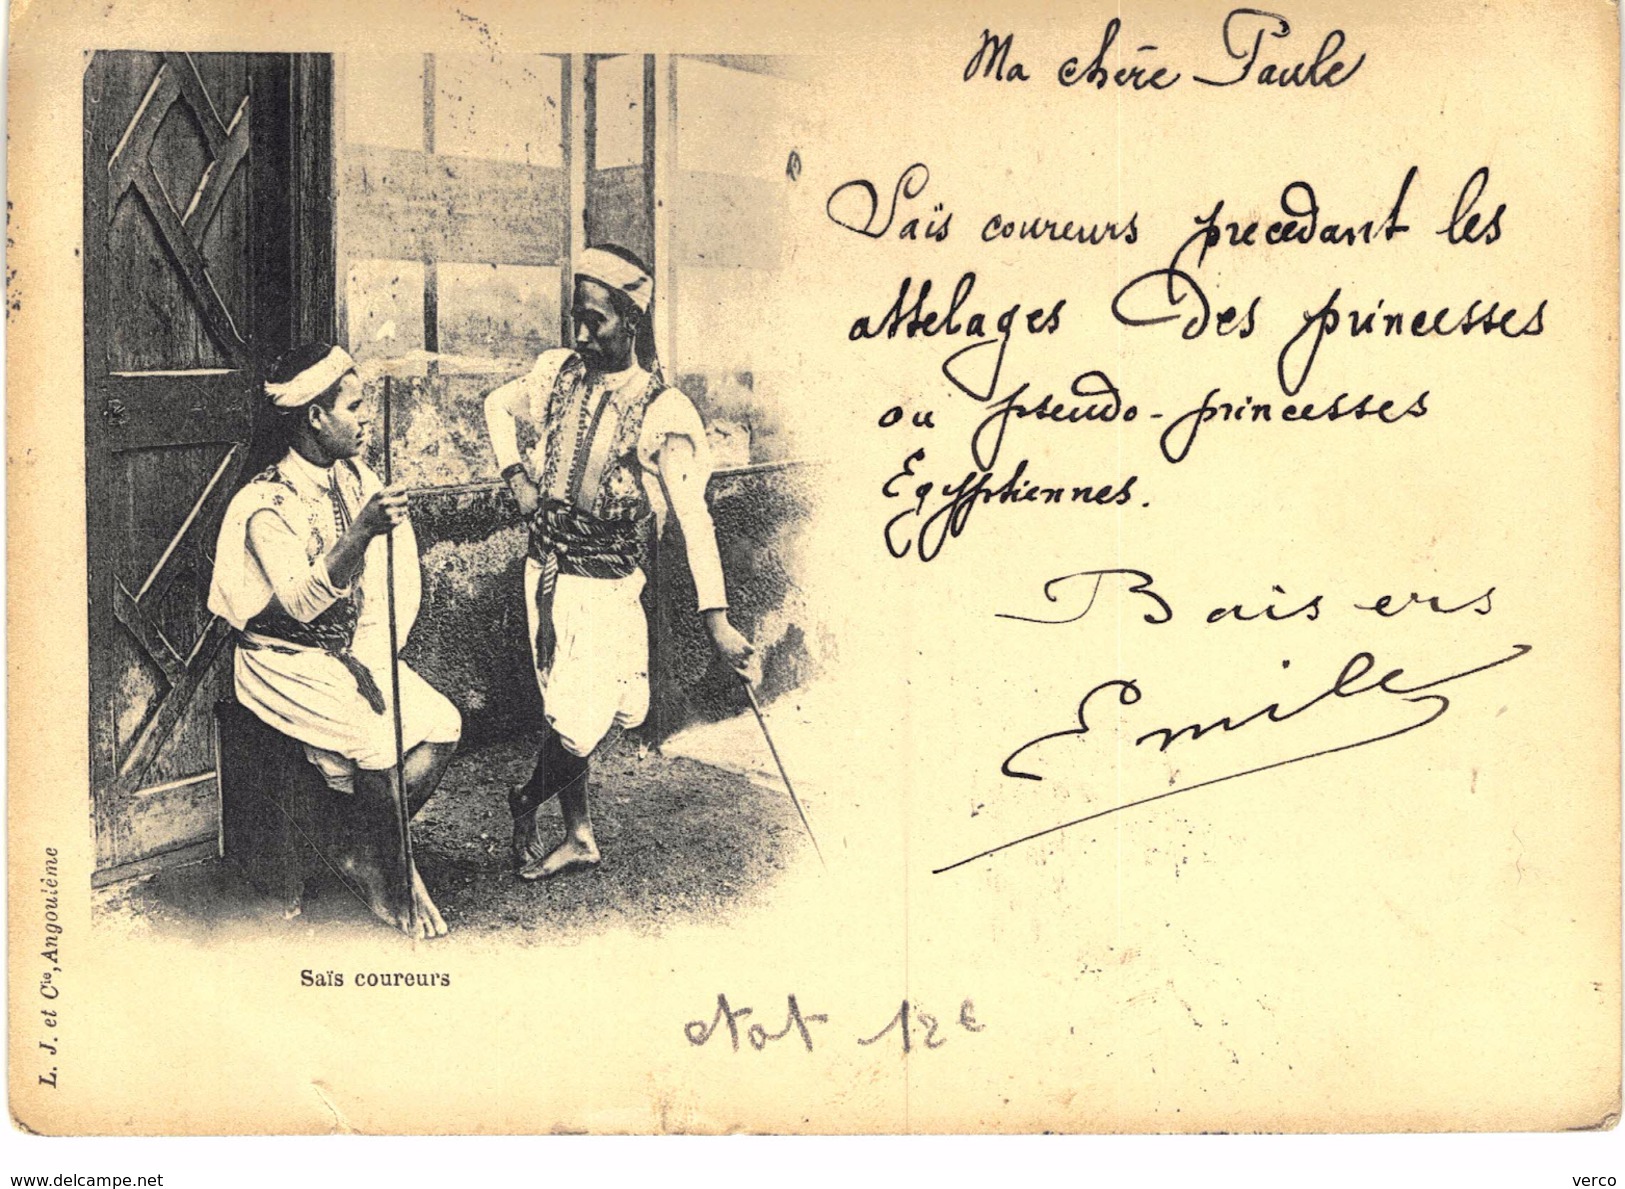 Ma chère Paule
Saïs coureurs precedant les
attelages des princesses
ou pseudo-princesses
Egyptiennes.
Baisers
Emile
Saïs coureurs
L. J. et Cie, Angoulême
etat 12€
www.delcampe.net
verco